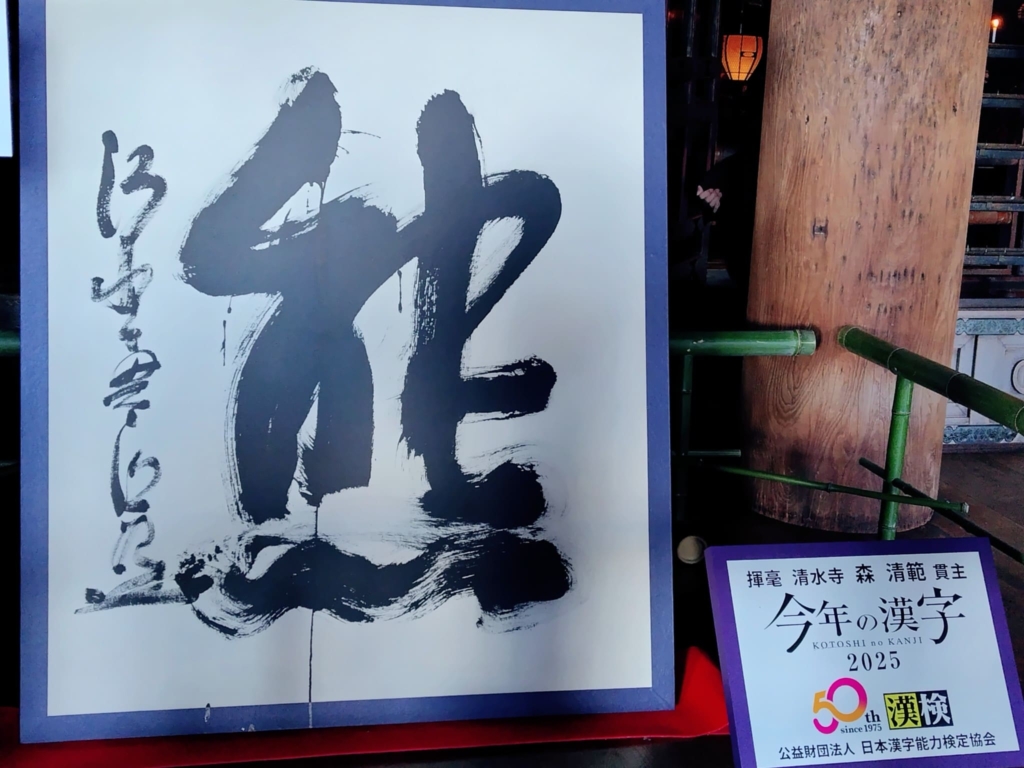 熊
揮毫 清水寺 森 清範 貫主
今年の漢字
KOTOSHI no KANJI
2025
50th
since 1975
漢検
公益財団法人 日本漢字能力検定協会